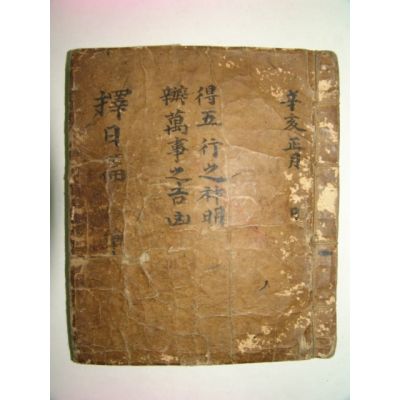 辛亥正月 日
得五行之神明
辨萬事之吉凶
擇日